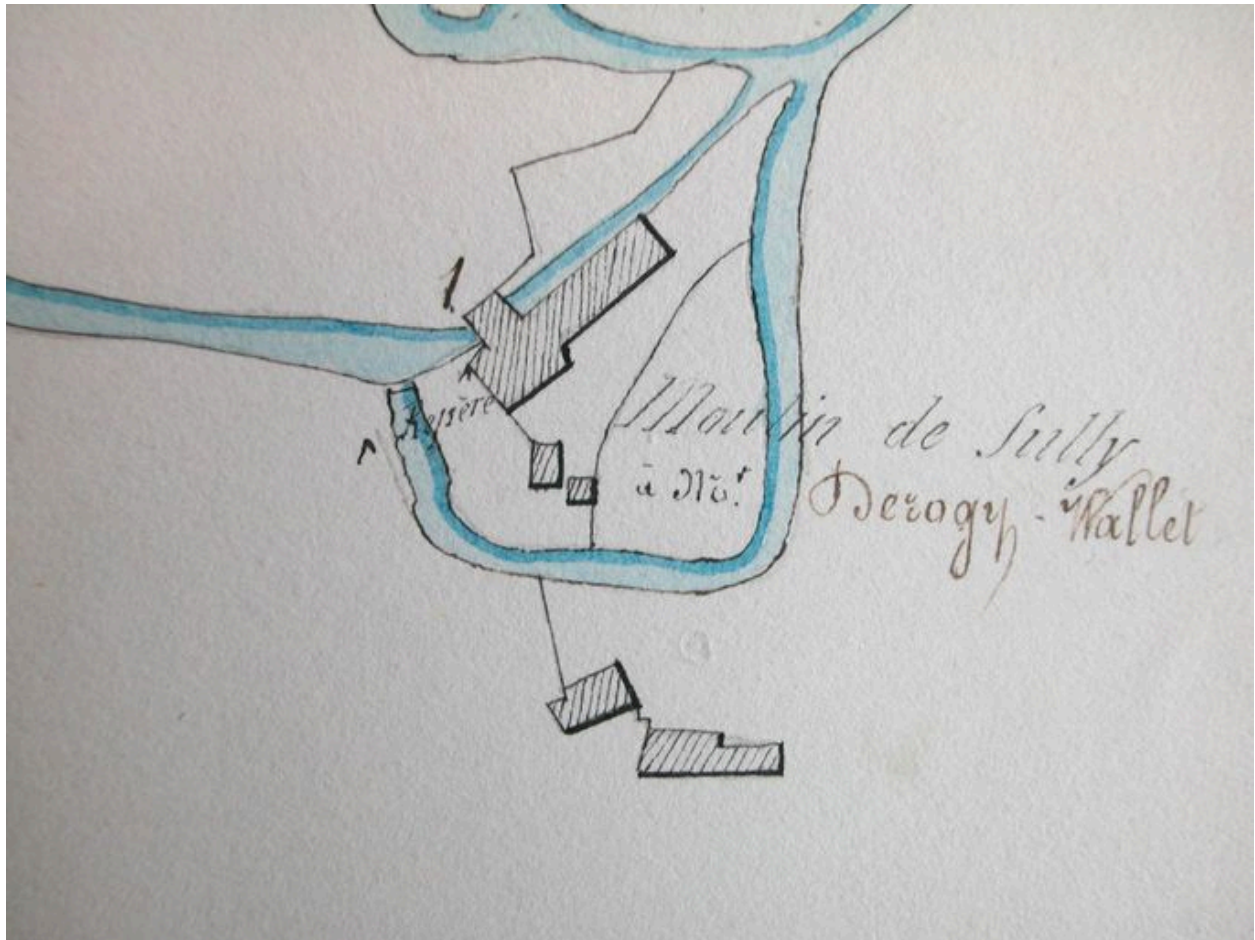 1
Repère
Moulin de Sully
à Mr. Derogy-Wallet